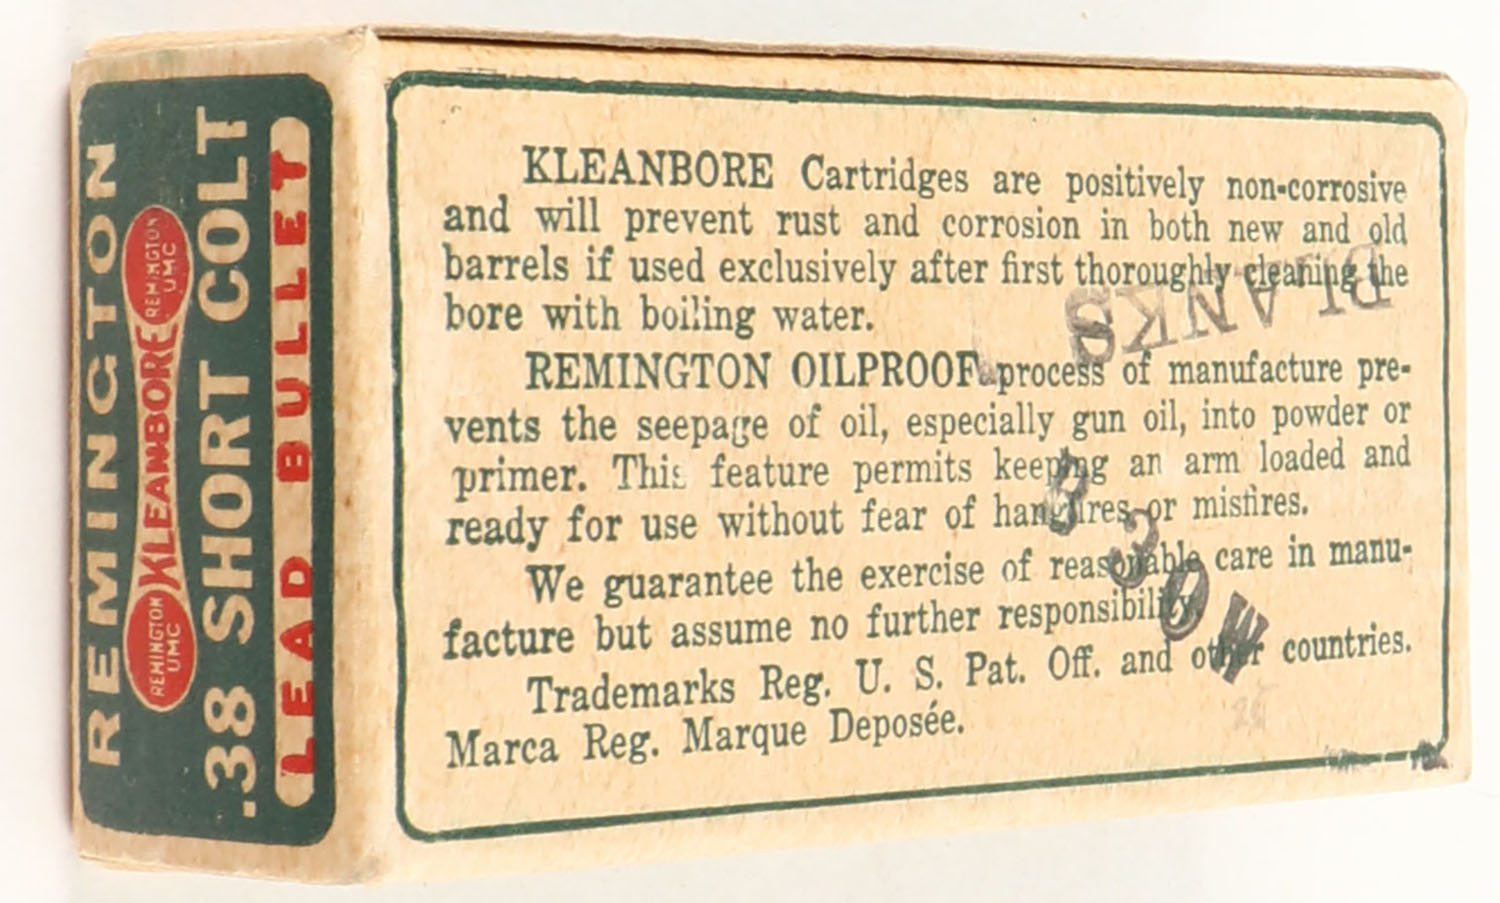 REMINGTON
REMINGTON
UMC
KLEANBORE
REMINGTON
UMC
.38 SHORT COLT
LEAD BULLET
KLEANBORE Cartridges are positively non-corrosive
and will prevent rust and corrosion in both new and old
barrels if used exclusively after first thoroughly cleaning the
bore with boiling water.
REMINGTON OILPROOF process of manufacture pre-
vents the seepage of oil, especially gun oil, into powder or
primer. This feature permits keeping an arm loaded and
ready for use without fear of hangfires or misfires.
We guarantee the exercise of reasonable care in manu-
facture but assume no further responsibility.
Trademarks Reg. U. S. Pat. Off. and other countries.
Marca Reg. Marque Deposée.
BLANKS